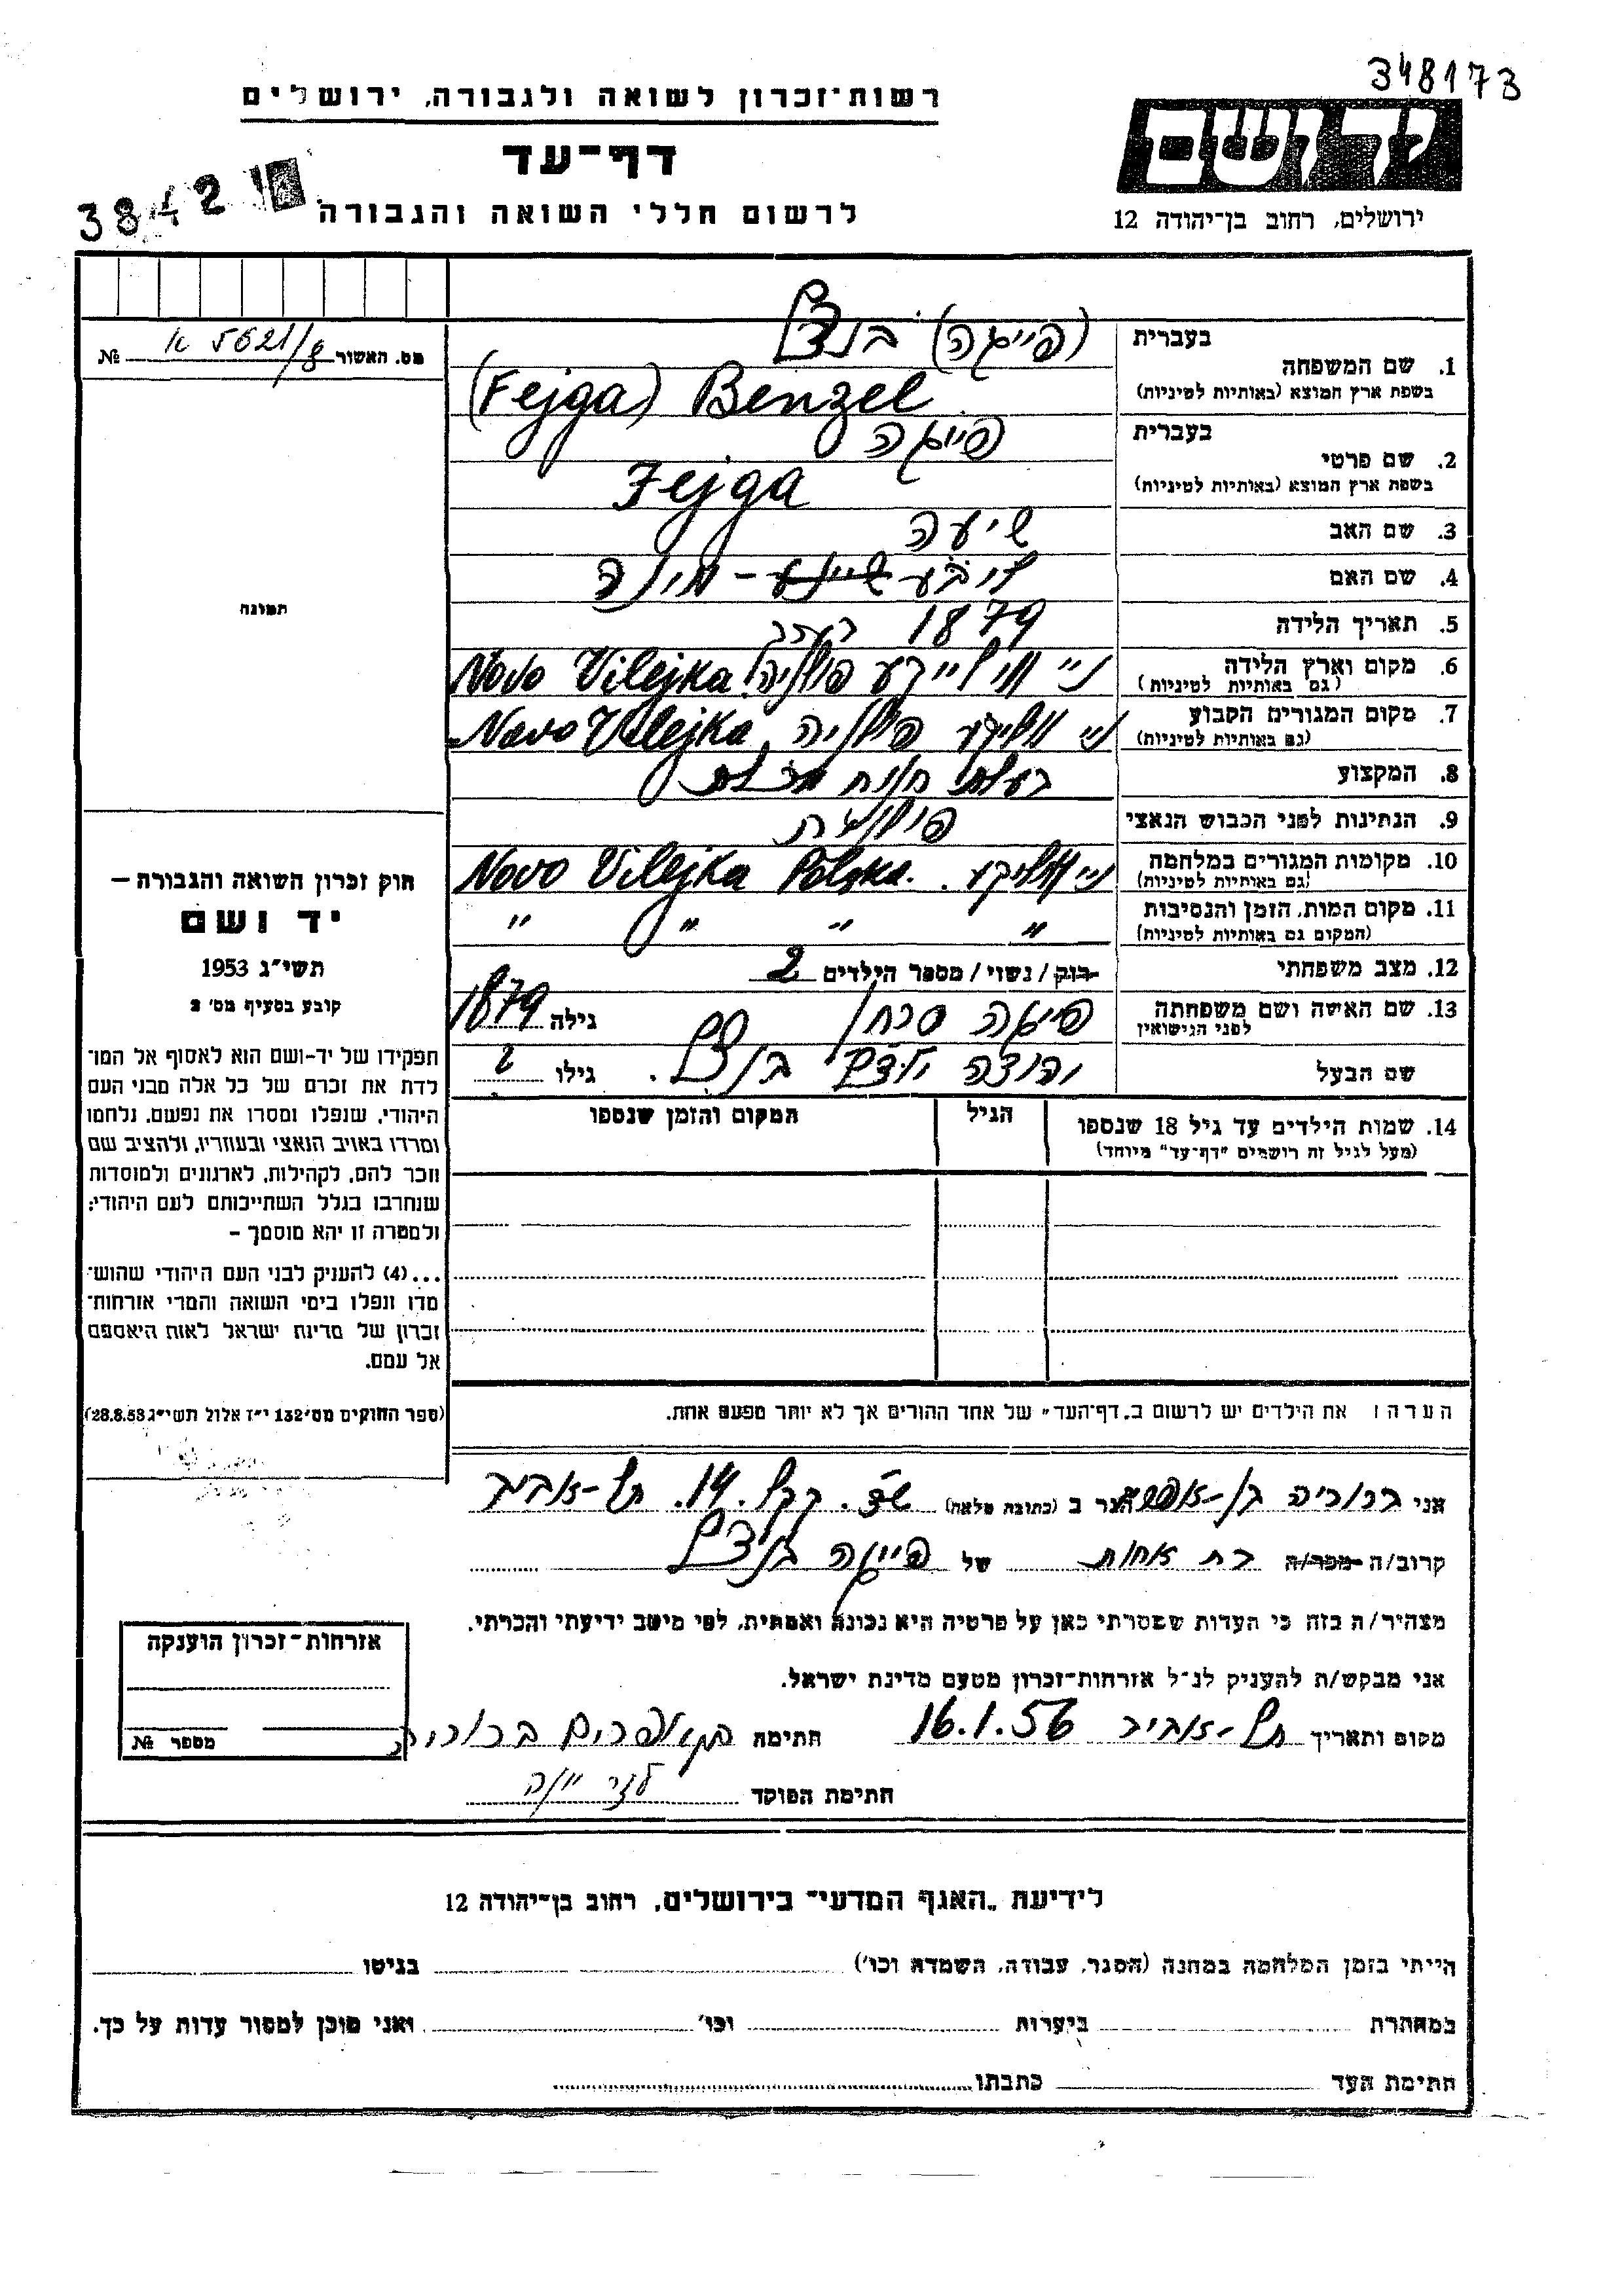 348173
רשות-זכרון לשואה ולגבורה, ירושלים
ידושם
דף-עד
לרשום חללי השואה והגבורה
ירושלים, רחוב בן-יהודה 12
3842
מס. האשור № 5621/8 א
1. שם המשפחה בעברית (פייגה) בנצל
בשפת ארץ המוצא (באותיות לטיניות) (Fejga) Benzel
2. שם פרטי בעברית פייגה
בשפת ארץ המוצא (באותיות לטיניות) Fejga
3. שם האב שיעה
4. שם האם
5. תאריך הלידה 1879 בערך
6. מקום וארץ הלידה (גם באותיות לטיניות) פולניה Novo Vilejka
7. מקום המגורים הקבוע (גם באותיות לטיניות) פולניה, Novo Vilejka
8. המקצוע בעלת חנות
9. הנתינות לפני הכבוש הנאצי פולנית
10. מקומות המגורים במלחמה (גם באותיות לטיניות) Novo Vilejka Polska.
11. מקום המות, הזמן והנסיבות (המקום גם באותיות לטיניות) " " " "
12. מצב משפחתי רוק / נשוי / מספר הילדים 2
13. שם האשה ושם משפחתה לפני הנישואין פייגה גילה 1879
שם הבעל בנצל. גילו
14. שמות הילדים עד גיל 18 שנספו הגיל המקום והזמן שנספו
(מעל לגיל זה רושמים "דף-עד" מיוחד)
תמונה
חוק זכרון השואה והגבורה –
יד ושם
תשי"ג 1953
קובע בסעיף מס' 2
תפקידו של יד-ושם הוא לאסוף אל המו־
לדת את זכרם של כל אלה מבני העם
היהודי, שנפלו ומסרו את נפשם, נלחמו
ומרדו באויב הנאצי ובעוזריו, ולהציב שם
וזכר להם, לקהילות, לארגונים ולמוסדות
שנחרבו בגלל השתייכותם לעם היהודי;
ולמטרה זו יהא מוסמך –
...(4) להעניק לבני העם היהודי שהוש־
מדו ונפלו בימי השואה והמרי אזרחות־
זכרון של מדינת ישראל לאות היאספם
אל עמם.
(ספר החוקים מס' 132 י"ז אלול תשי"ג 28.8.53)
הערה: את הילדים יש לרשום ב„דף-העד" של אחד ההורים אך לא יותר מפעם אחת.
אני ברוריה הגר ב (כתובת מלאה) שד. קקל. 14. תל-אביב
קרוב/ה מכר/ה בת אחות של פייגה בנצל
מצהיר/ה בזה כי העדות שמסרתי כאן על פרטיה היא נכונה ואמתית, לפי מיטב ידיעתי והכרתי.
אני מבקש/ה להעניק לנ"ל אזרחות-זכרון מטעם מדינת ישראל.
מקום ותאריך תל-אביב 16.1.56 חתימה ברוריה
חתימת הפוקד
אזרחות-זכרון הוענקה
מספר №
לידיעת „האגף המדעי" בירושלים, רחוב בן-יהודה 12
הייתי בזמן המלחמה במחנה (הסגר, עבודה, השמדה וכו') בגיטו
במחתרת ביערות וכו' ואני מוכן למסור עדות על כך.
חתימת העד כתבתו